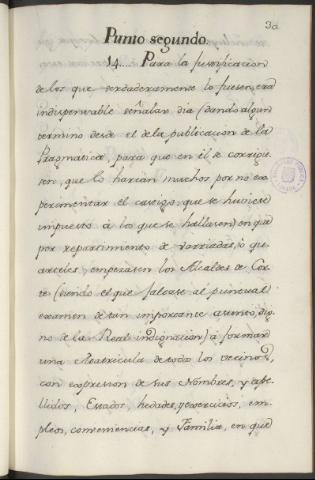 30
Punto segundo.
14.... Para la justificacion
de los que verdaderamente lo fuesen, era
indispensable señalar dia (dando algun
termino desde el de la publicacion de la
Pragmatica, para que en èl se corrigie-
sen, que lo harian muchos por no ex-
perimentar el castigo, que se huviese
impuesto à los que se hallasen) en que
por repartimiento de varriadas, ò qu-
arteles, empezasen los Alcaldes de Cor-
te (siendo el que faltase al puntual
examen de tan importante asunto, dig-
no de la Real indignacion) à formar
una Matricula de todos los vecinos,
con expresion de sus Nombres, y ape-
llidos, Estados, hedades, y exercicios, em-
pleos, combeniencias, y Familia, en que